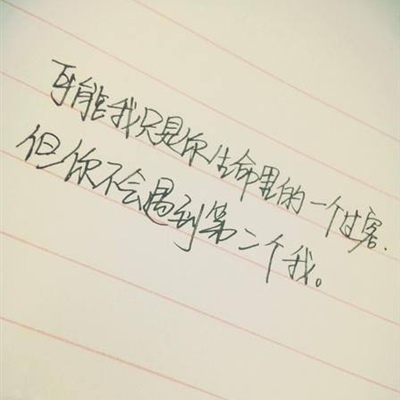 可能我只是你生命里的一个过客.
但你不会遇到第二个我。